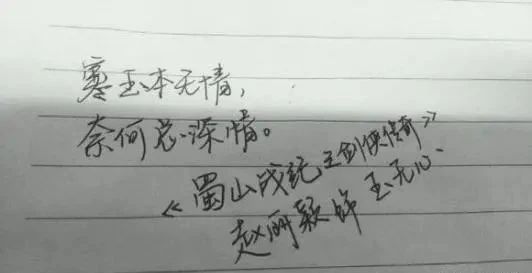 寒玉本无情，
奈何总深情。
《蜀山战纪之剑侠传奇》
赵丽颖饰 玉无心、